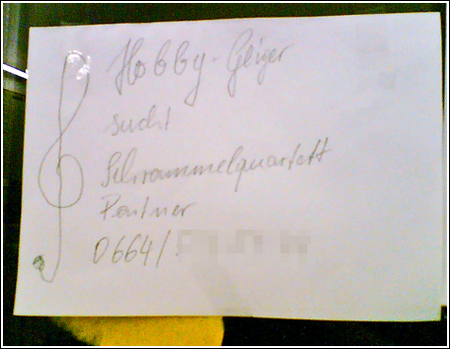 Hobby-Geiger
sucht
Schrammelquartett
Partner
0664/